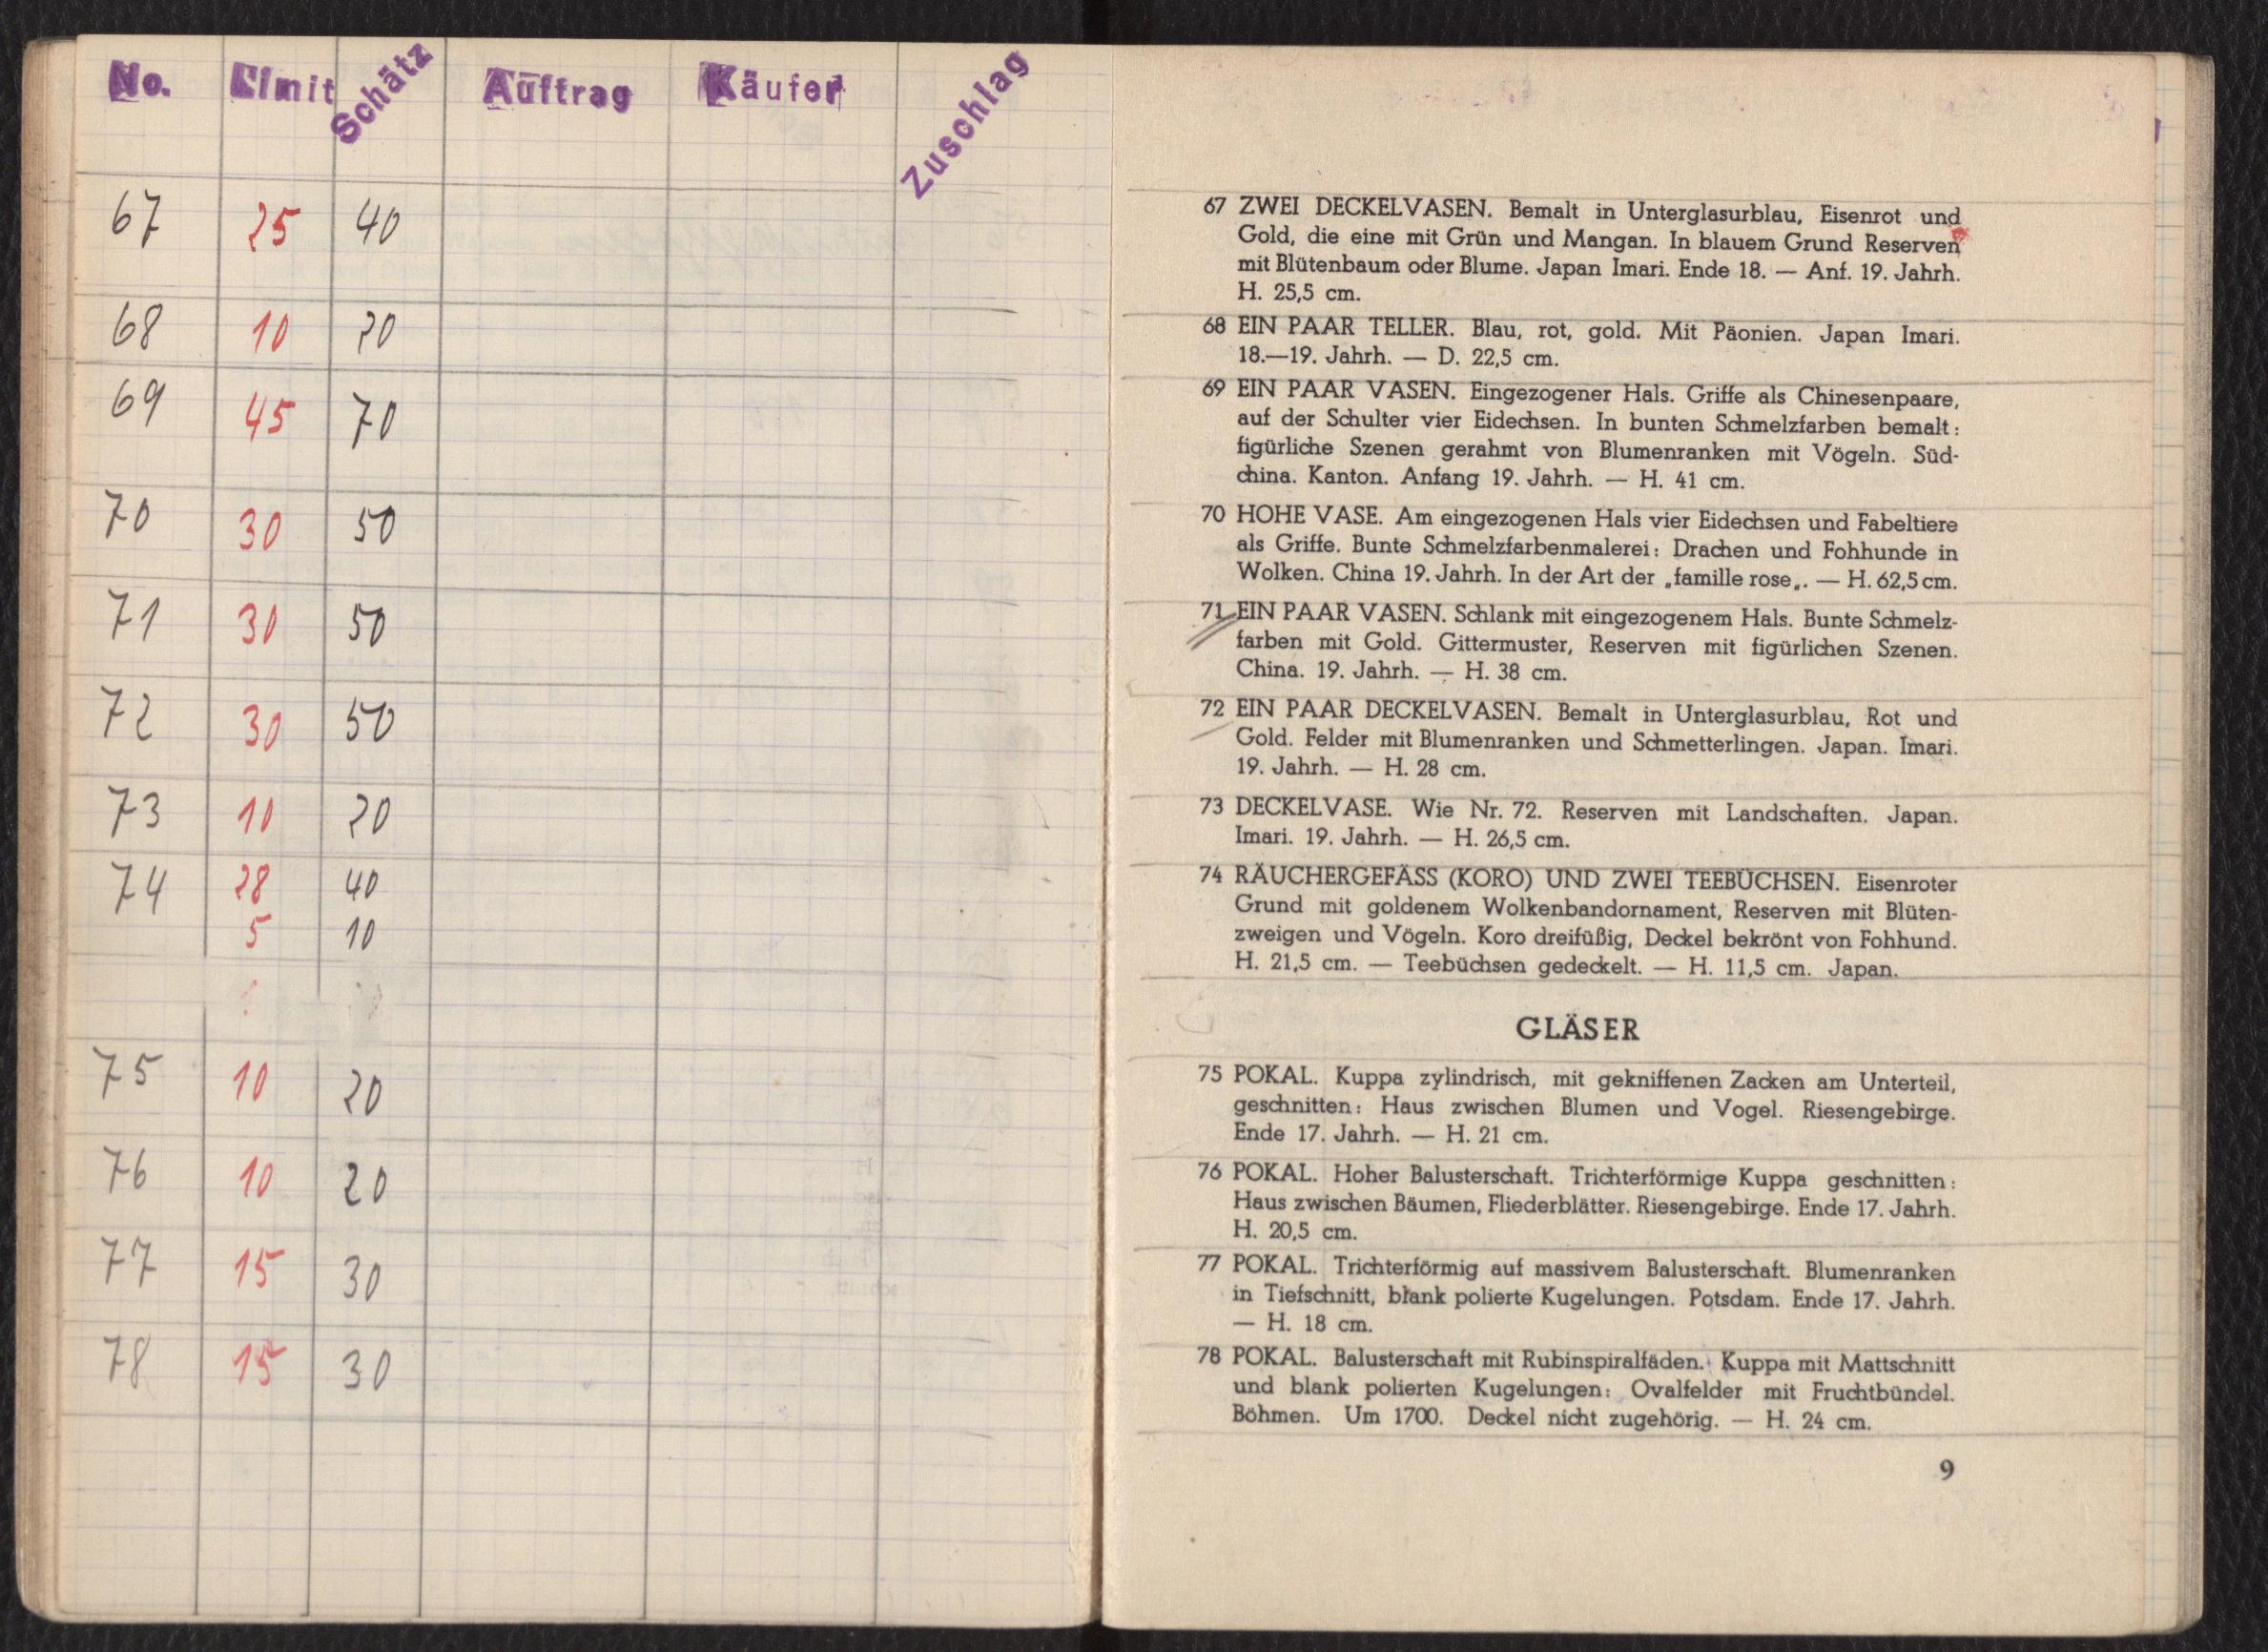 No. Limit Schätz Auftrag Käufer Zuschlag
67 25 40
68 10 20
69 45 70
70 30 50
71 30 50
72 30 50
73 10 20
74 28 40
5 10
75 10 20
76 10 20
77 15 30
78 15 30
67 ZWEI DECKELVASEN. Bemalt in Unterglasurblau, Eisenrot und
Gold, die eine mit Grün und Mangan. In blauem Grund Reserven
mit Blütenbaum oder Blume. Japan Imari. Ende 18. — Anf. 19. Jahrh.
H. 25,5 cm.
68 EIN PAAR TELLER. Blau, rot, gold. Mit Päonien. Japan Imari.
18.—19. Jahrh. — D. 22,5 cm.
69 EIN PAAR VASEN. Eingezogener Hals. Griffe als Chinesenpaare,
auf der Schulter vier Eidechsen. In bunten Schmelzfarben bemalt:
figürliche Szenen gerahmt von Blumenranken mit Vögeln. Süd-
china. Kanton. Anfang 19. Jahrh. — H. 41 cm.
70 HOHE VASE. Am eingezogenen Hals vier Eidechsen und Fabeltiere
als Griffe. Bunte Schmelzfarbenmalerei: Drachen und Fohhunde in
Wolken. China 19. Jahrh. In der Art der „famille rose„. — H. 62,5 cm.
71 EIN PAAR VASEN. Schlank mit eingezogenem Hals. Bunte Schmelz-
farben mit Gold. Gittermuster, Reserven mit figürlichen Szenen.
China. 19. Jahrh. — H. 38 cm.
72 EIN PAAR DECKELVASEN. Bemalt in Unterglasurblau, Rot und
Gold. Felder mit Blumenranken und Schmetterlingen. Japan. Imari.
19. Jahrh. — H. 28 cm.
73 DECKELVASE. Wie Nr. 72. Reserven mit Landschaften. Japan.
Imari. 19. Jahrh. — H. 26,5 cm.
74 RÄUCHERGEFÄSS (KORO) UND ZWEI TEEBÜCHSEN. Eisenroter
Grund mit goldenem Wolkenbandornament, Reserven mit Blüten-
zweigen und Vögeln. Koro dreifüßig, Deckel bekrönt von Fohhund.
H. 21,5 cm. — Teebüchsen gedeckelt. — H. 11,5 cm. Japan.
GLÄSER
75 POKAL. Kuppa zylindrisch, mit gekniffenen Zacken am Unterteil,
geschnitten: Haus zwischen Blumen und Vogel. Riesengebirge.
Ende 17. Jahrh. — H. 21 cm.
76 POKAL. Hoher Balusterschaft. Trichterförmige Kuppa geschnitten:
Haus zwischen Bäumen, Fliederblätter. Riesengebirge. Ende 17. Jahrh.
H. 20,5 cm.
77 POKAL. Trichterförmig auf massivem Balusterschaft. Blumenranken
in Tiefschnitt, blank polierte Kugelungen. Potsdam. Ende 17. Jahrh.
— H. 18 cm.
78 POKAL. Balusterschaft mit Rubinspiralfäden. Kuppa mit Mattschnitt
und blank polierten Kugelungen: Ovalfelder mit Fruchtbündel.
Böhmen. Um 1700. Deckel nicht zugehörig. — H. 24 cm.
9